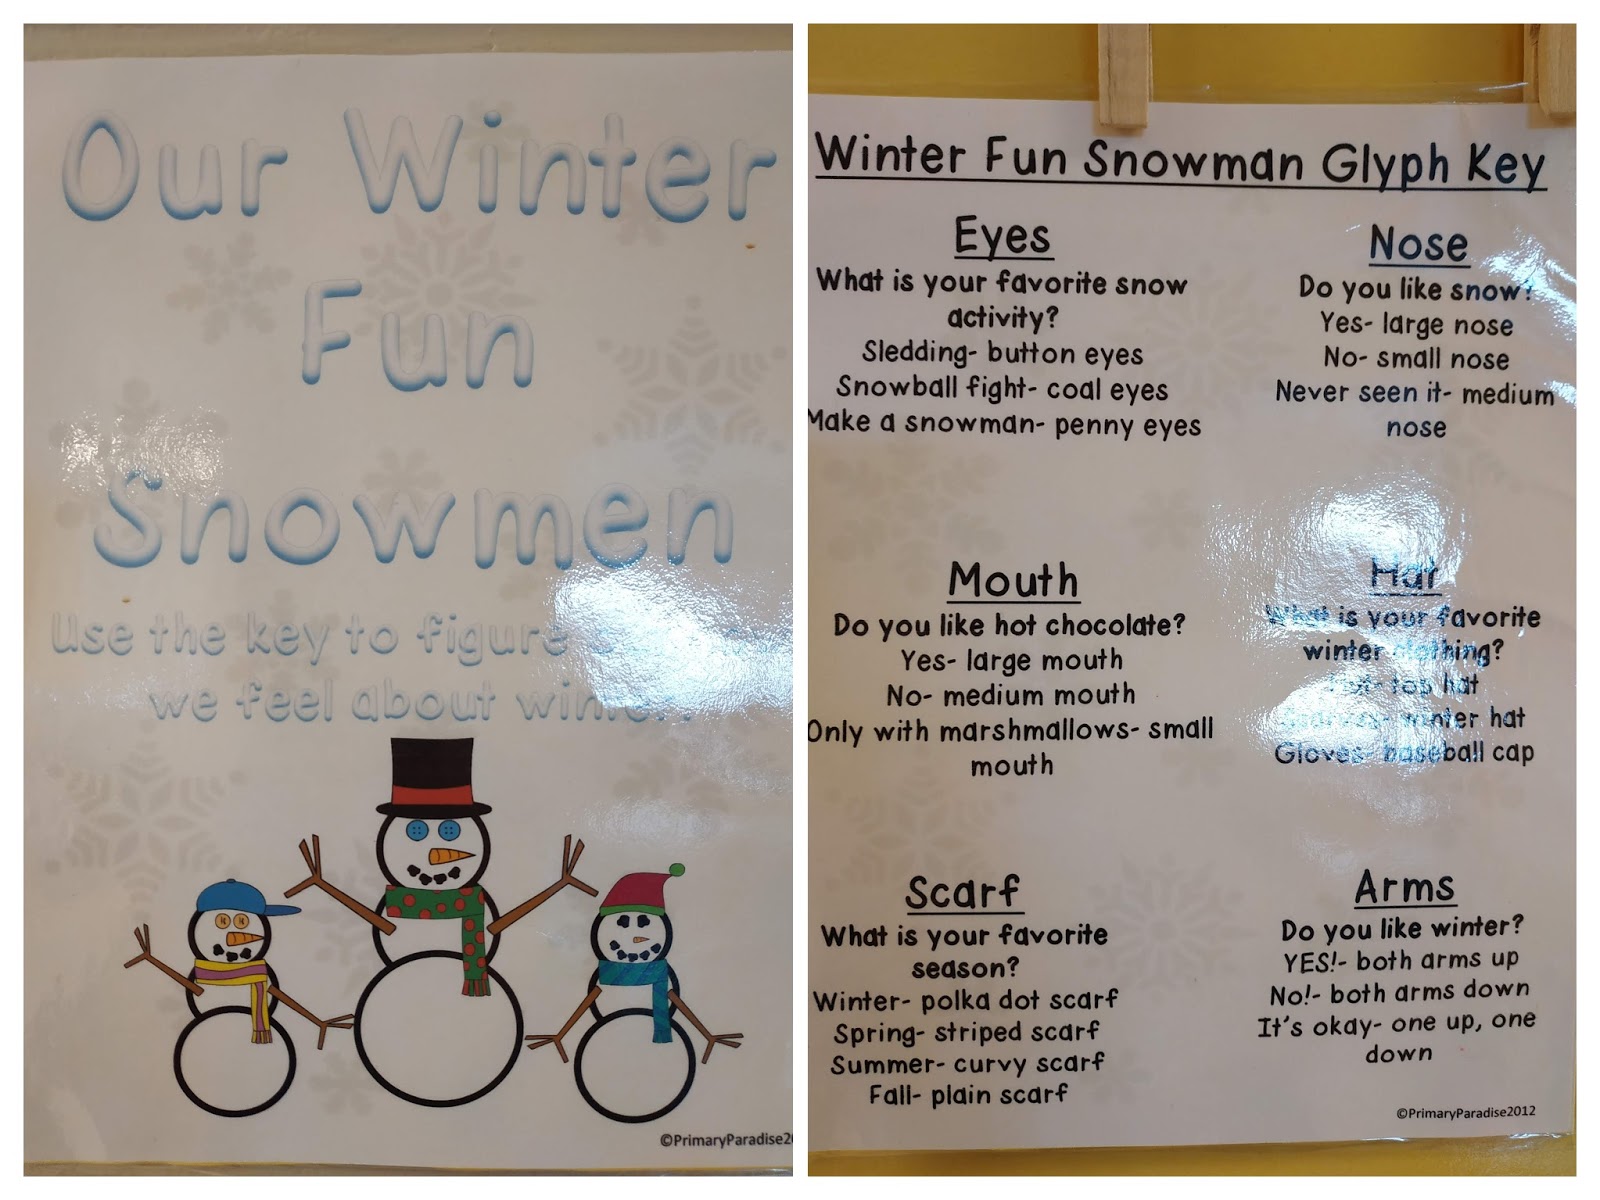 Our Winter
Fun
Snowmen
Use the key to figure
we feel about
©PrimaryParadise
Winter Fun Snowman Glyph Key
Eyes
What is your favorite snow
activity?
Sledding- button eyes
Snowball fight- coal eyes
Make a snowman- penny eyes
Nose
Do you like snow?
Yes- large nose
No- small nose
Never seen it- medium
nose
Mouth
Do you like hot chocolate?
Yes- large mouth
No- medium mouth
Only with marshmallows- small
mouth
Hat
What is your favorite
winter clothing?
top hat
winter hat
Gloves- baseball cap
Scarf
What is your favorite
season?
Winter- polka dot scarf
Spring- striped scarf
Summer- curvy scarf
Fall- plain scarf
Arms
Do you like winter?
YES!- both arms up
No!- both arms down
It's okay- one up, one
down
©PrimaryParadise2012